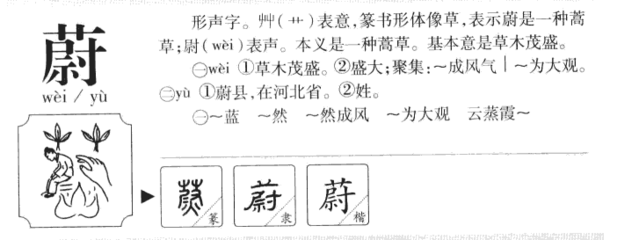 蔚
wèi / yù
形声字。艸(艹)表意,篆书形体像草,表示蔚是一种蒿
草;尉(wèi)表声。本义是一种蒿草。基本意是草木茂盛。
㊀wèi ①草木茂盛。②盛大;聚集:～成风气｜～为大观。
㊁yù ①蔚县,在河北省。②姓。
㊀～蓝 ～然 ～然成风 ～为大观 云蒸霞～
蔚 篆 蔚 隶 蔚 楷